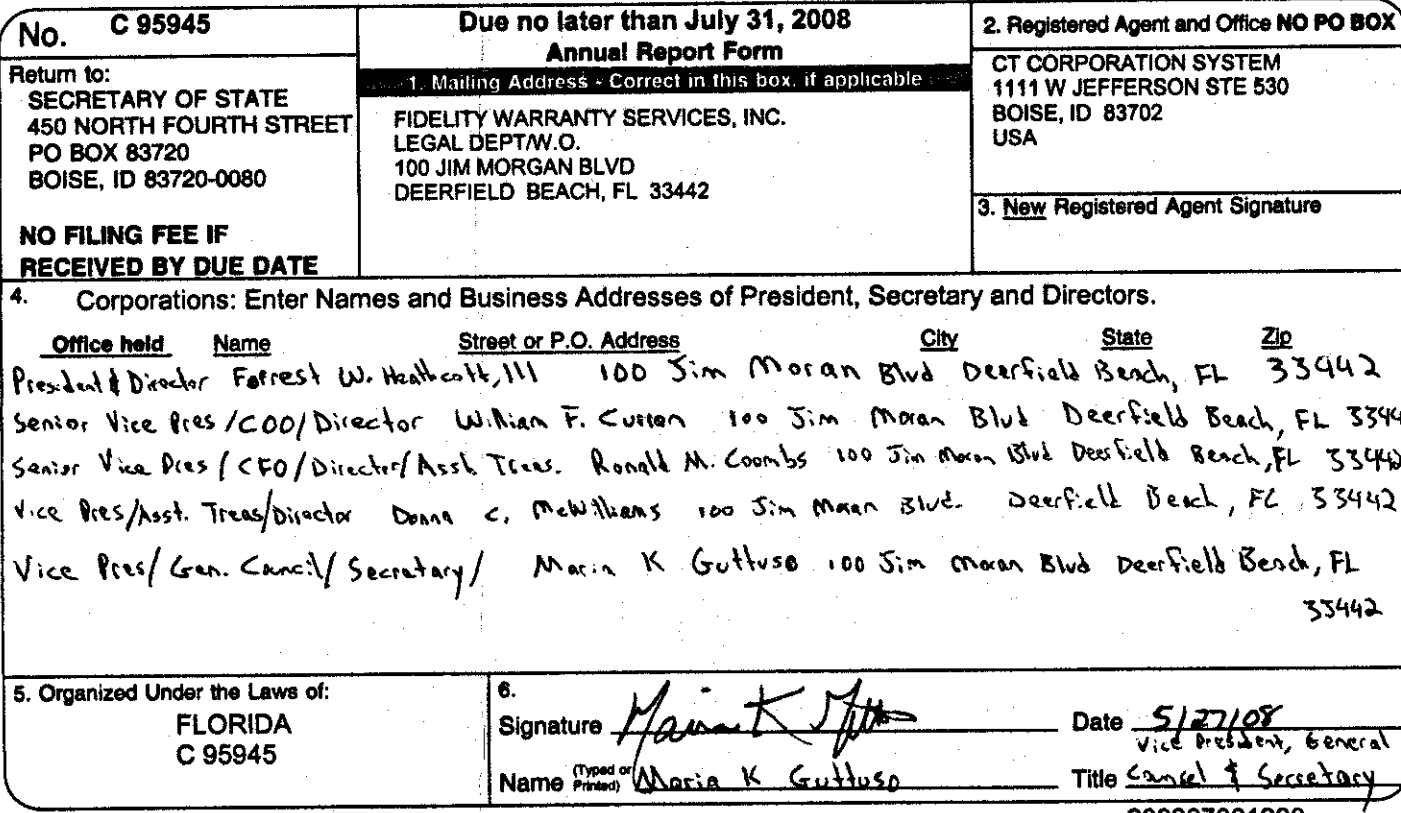 No. C 95945
Return to:
SECRETARY OF STATE
450 NORTH FOURTH STREET
PO BOX 83720
BOISE, ID 83720-0080
NO FILING FEE IF
RECEIVED BY DUE DATE
Due no later than July 31, 2008
Annual Report Form
1. Mailing Address - Correct in this box, if applicable
FIDELITY WARRANTY SERVICES, INC.
LEGAL DEPT/W.O.
100 JIM MORGAN BLVD
DEERFIELD BEACH, FL 33442
2. Registered Agent and Office NO PO BOX
CT CORPORATION SYSTEM
1111 W JEFFERSON STE 530
BOISE, ID 83702
USA
3. New Registered Agent Signature
4. Corporations: Enter Names and Business Addresses of President, Secretary and Directors.
Office held Name Street or P.O. Address City State Zip
President & Director Forrest W. Heathcott, III 100 Jim Moran Blvd Deerfield Beach, FL 33442
Senior Vice Pres/COO/Director William F. 100 Jim Moran Blvd Deerfield Beach, FL 3344
Senior Vice Pres/CFO/Director/Asst. Treas. Ronald M. Coombs 100 Jim Moran Blvd Deerfield Beach, FL 33442
Vice Pres/Asst. Treas/Director Donna C. McWilliams 100 Jim Moran Blvd. Deerfield Beach, FL 33442
Vice Pres/Gen. Council/Secretary/ Maria K Guttuso 100 Jim Moran Blvd Deerfield Beach, FL
33442
5. Organized Under the Laws of:
FLORIDA
C 95945
6.
Signature Date 5/27/08
Vice President, General
Name (Typed or Printed) Maria K Guttuso Title & Secretary